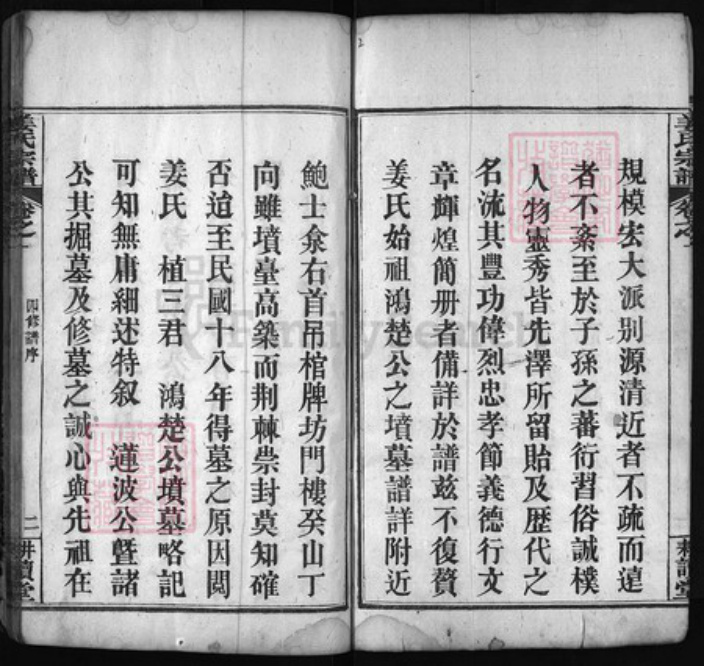 姜氏宗譜
卷之一
耕讀堂
規模宏大派别源清近者不疏而遠
者不紊至於子孫之蕃衍習俗誠樸
人物靈秀皆先澤所留貽及歴代之
名流其豐功偉烈忠孝節義德行文
章輝煌簡册者備詳於譜兹不復贅
姜氏始祖鴻楚公之墳墓譜詳附近
鮑士㑒右首吊棺牌坊門樓癸山丁
向雖墳臺高築而荆棘崇封莫知確
否迨至民國十八年得墓之原因閲
姜氏 植三君 鴻楚公墳墓略記
可知無庸細述特叙 蓮波公暨諸
公其掘墓及修墓之誠心與先祖在
姜氏宗譜
卷之一
四修譜序
二
耕讀堂
FamilySearch